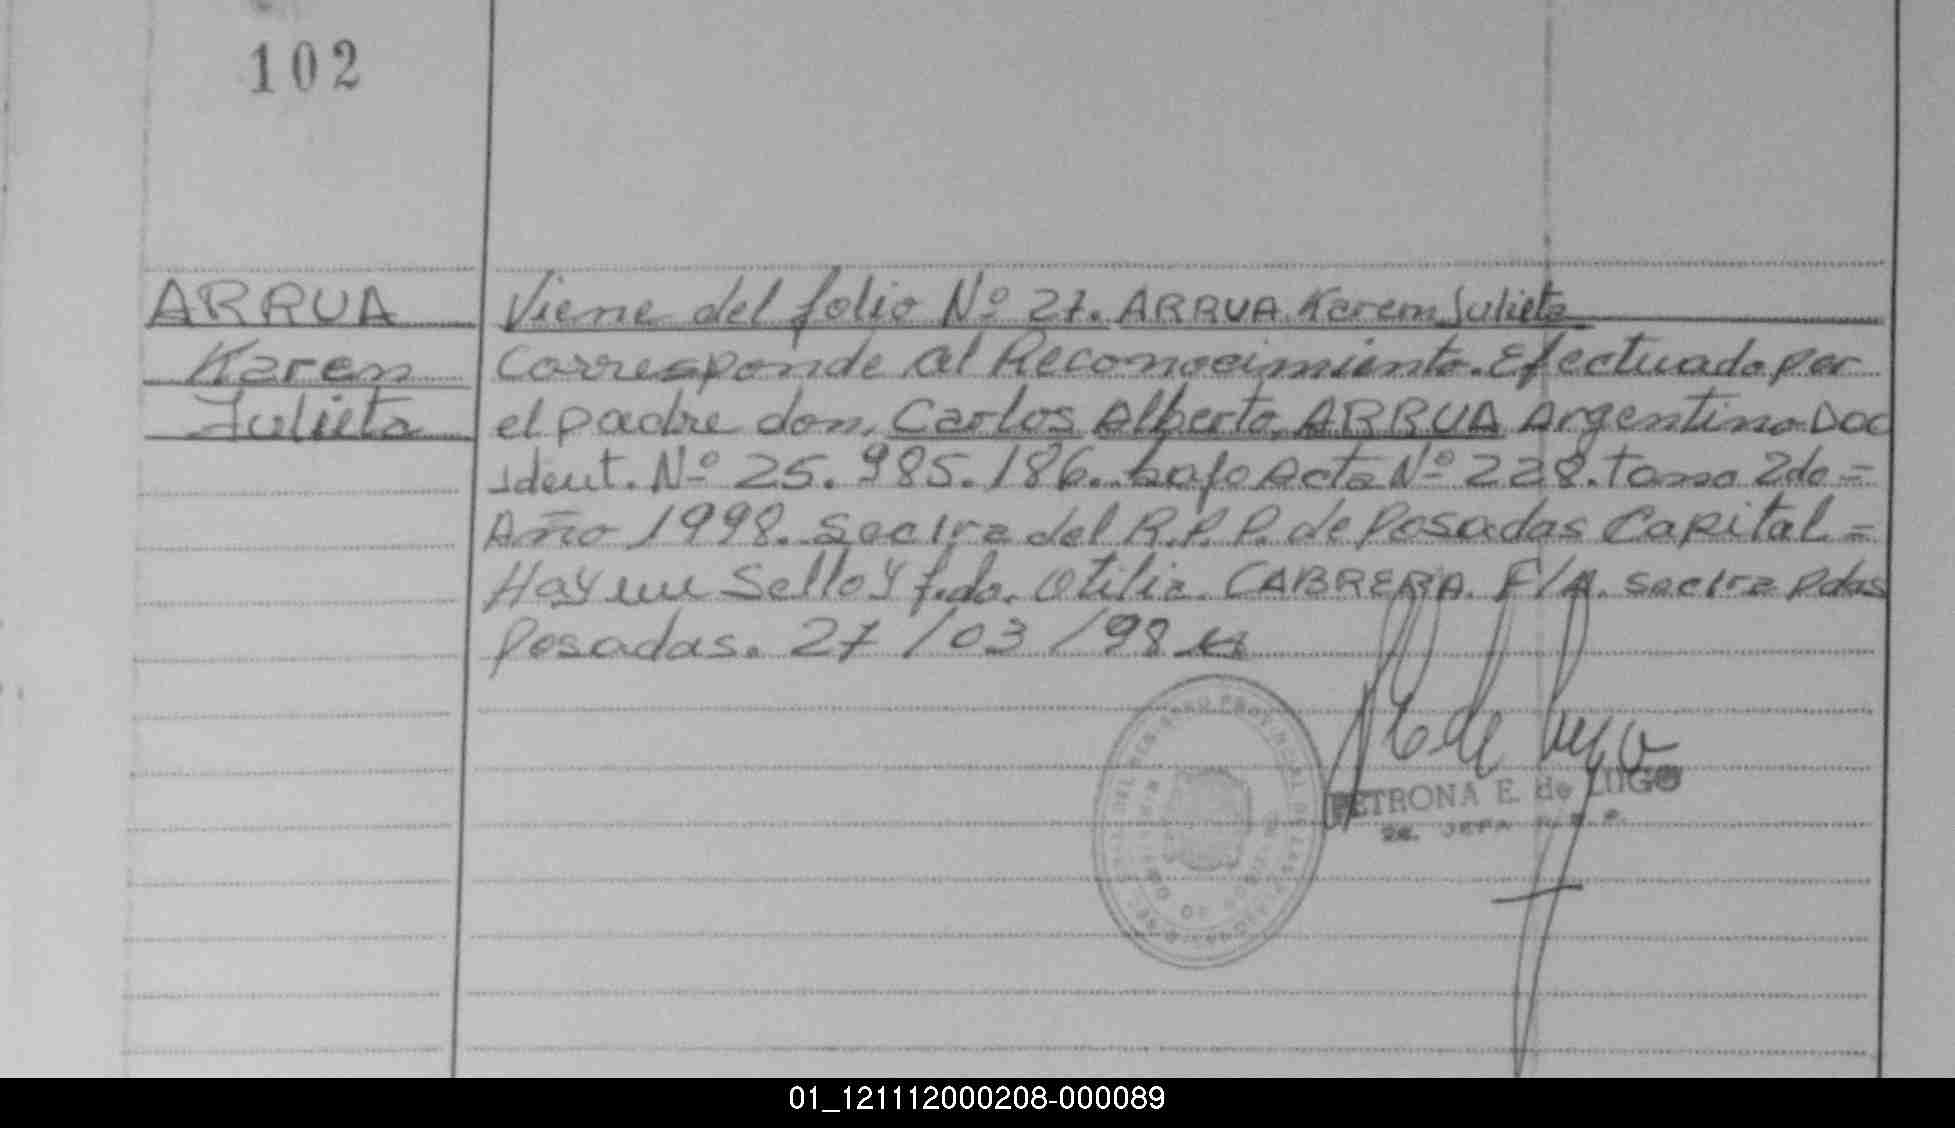 102
ARRUA
Karen
Julieta
Viene del folio Nº 27. ARRUA Karem Julieta
Corresponde al Reconocimiento. Efectuado por
el padre don. Carlos Alberto. ARRUA Argentino Doc
ident. Nº 25.985.186. bajo Acta Nº 228. tomo 2do =
Año 1998. Sec 1ra del R.P.P. de Posadas Capital =
Hay un Sello y f.do. Otilia. CABRERA. F/A. sec 1ra Pdas
Posadas. 27/03/98
PETRONA E. de LUGO
JEFA
01_121112000208-000089